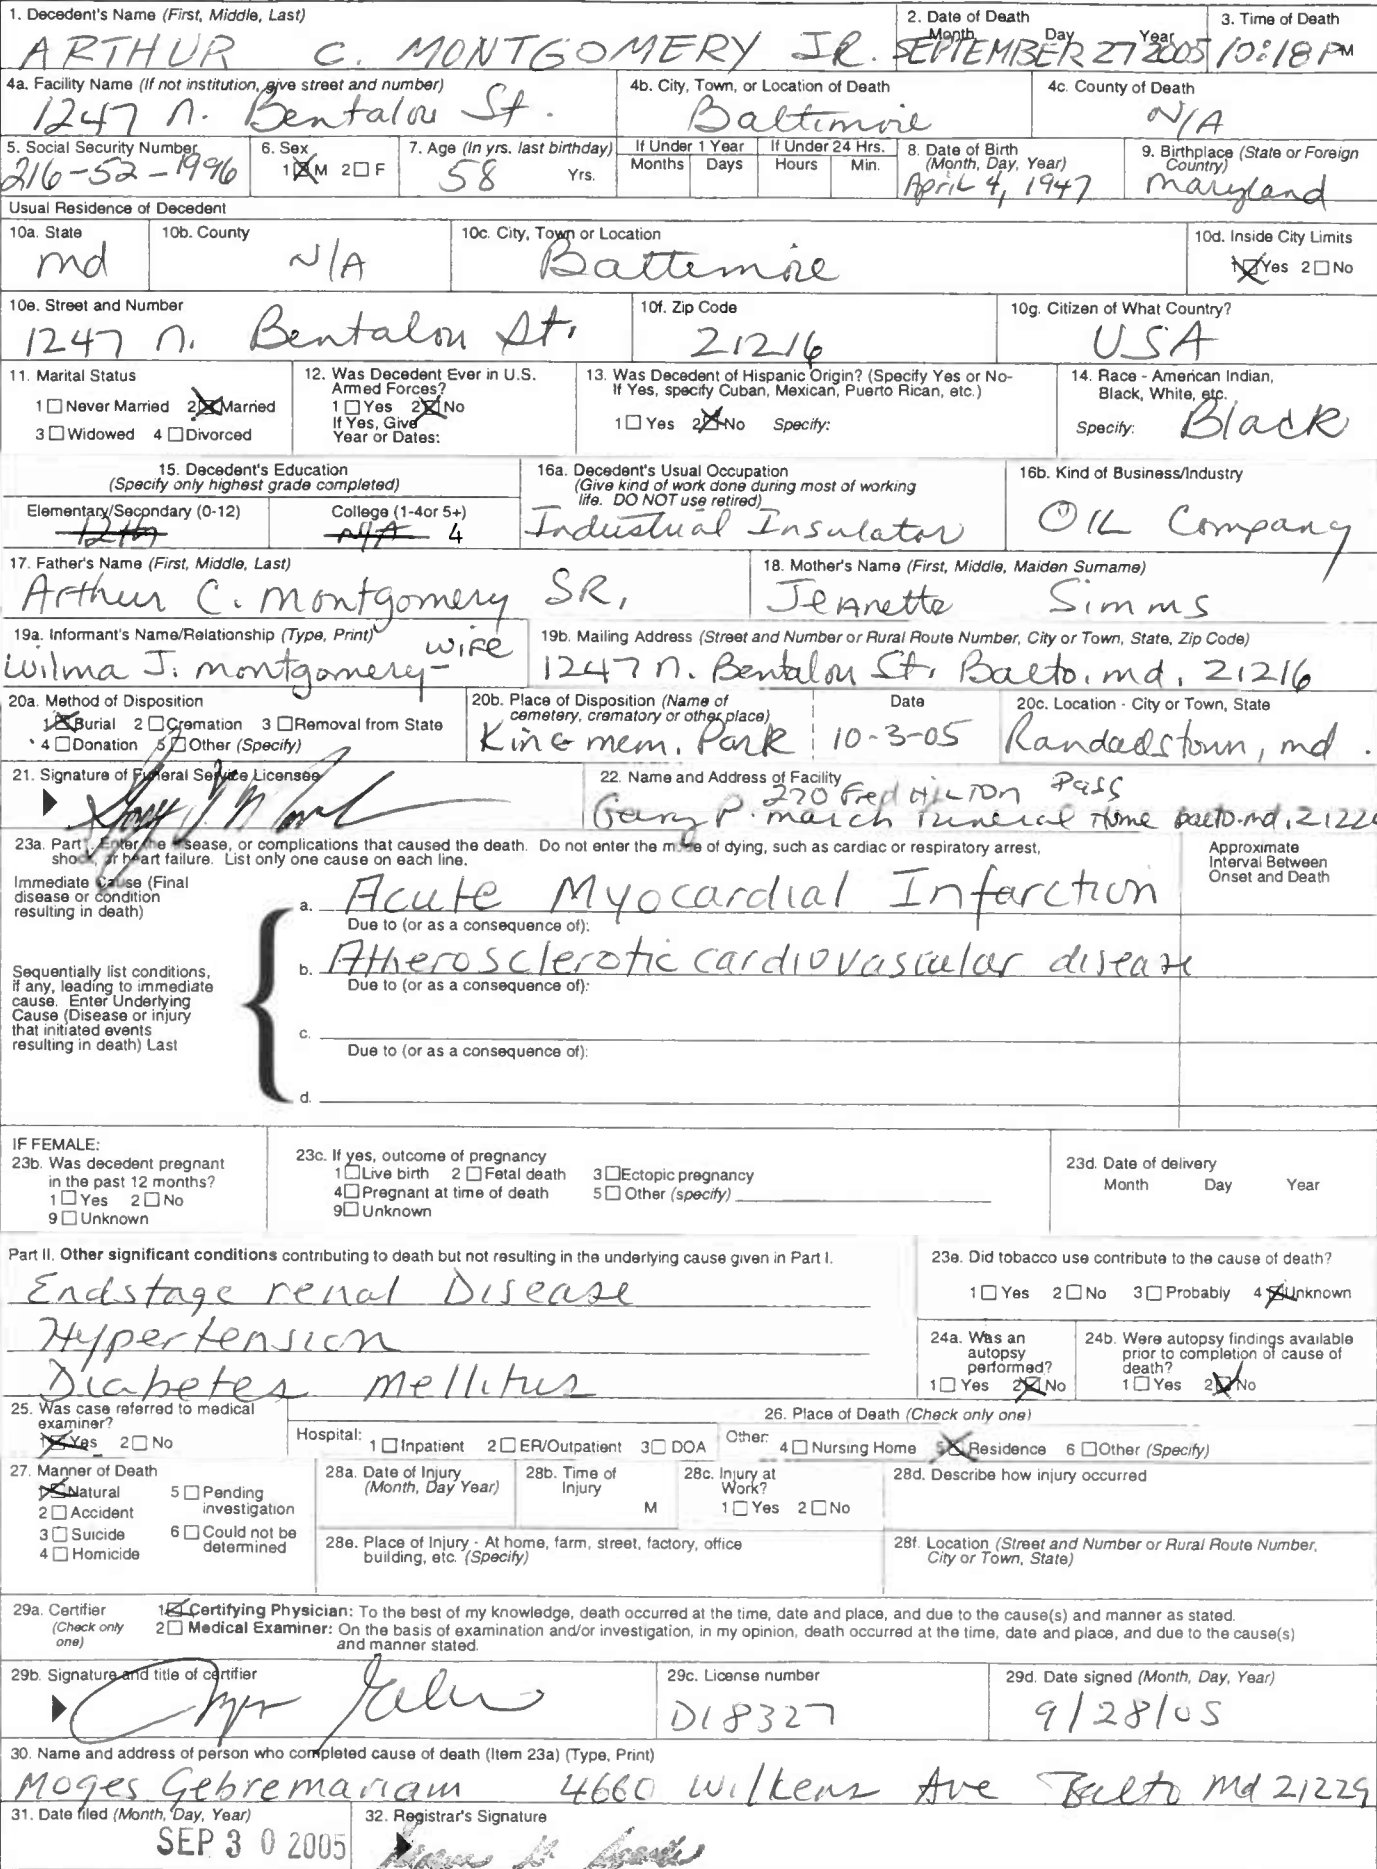 1. Decedent's Name (First, Middle, Last)
ARTHUR C. MONTGOMERY JR.
2. Date of Death
Month Day Year
SEPTEMBER 27 2005
3. Time of Death
10:18 PM
4a. Facility Name (If not institution, give street and number)
1247 N. Bentalou St.
4b. City, Town, or Location of Death
Baltimore
4c. County of Death
N/A
5. Social Security Number
216-52-1996
6. Sex
1 ☒ M 2 ☐ F
7. Age (In yrs. last birthday)
58 Yrs.
If Under 1 Year
Months Days
If Under 24 Hrs.
Hours Min.
8. Date of Birth
(Month, Day, Year)
April 4, 1947
9. Birthplace (State or Foreign
Country)
Maryland
Usual Residence of Decedent
10a. State
md
10b. County
N/A
10c. City, Town or Location
Baltimore
10d. Inside City Limits
1 ☒ Yes 2 ☐ No
10e. Street and Number
1247 N. Bentalou St.
10f. Zip Code
21216
10g. Citizen of What Country?
USA
11. Marital Status
1 ☐ Never Married 2 ☒ Married
3 ☐ Widowed 4 ☐ Divorced
12. Was Decedent Ever in U.S.
Armed Forces?
1 ☐ Yes 2 ☒ No
If Yes, Give
Year or Dates:
13. Was Decedent of Hispanic Origin? (Specify Yes or No-
If Yes, specify Cuban, Mexican, Puerto Rican, etc.)
1 ☐ Yes 2 ☒ No Specify:
14. Race - American Indian,
Black, White, etc.
Specify: Black
15. Decedent's Education
(Specify only highest grade completed)
Elementary/Secondary (0-12)
12th
College (1-4or 5+)
N/A 4
16a. Decedent's Usual Occupation
(Give kind of work done during most of working
life. DO NOT use retired)
Industrual Insulator
16b. Kind of Business/Industry
OIL Company
17. Father's Name (First, Middle, Last)
Arthur C. Montgomery SR,
18. Mother's Name (First, Middle, Maiden Surname)
Jeanette Simms
19a. Informant's Name/Relationship (Type, Print)
Wilma J. Montgomery - wife
19b. Mailing Address (Street and Number or Rural Route Number, City or Town, State, Zip Code)
1247 N. Bentalou St. Balto. md. 21216
20a. Method of Disposition
1 ☒ Burial 2 ☐ Cremation 3 ☐ Removal from State
4 ☐ Donation 5 ☐ Other (Specify)
20b. Place of Disposition (Name of
cemetery, crematory or other place)
King mem. Park
Date
10-3-05
20c. Location - City or Town, State
Randadstown, md.
21. Signature of Funeral Service Licensee
22. Name and Address of Facility
270 Fred HILTON Pass
Gary P. march Funeral Home Balto. md. 2122
23a. Part I. Enter the disease, or complications that caused the death. Do not enter the mode of dying, such as cardiac or respiratory arrest,
shock, or heart failure. List only one cause on each line.
Approximate
Interval Between
Onset and Death
Immediate Cause (Final
disease or condition
resulting in death)
a. Acute Myocardial Infarction
Due to (or as a consequence of):
b. Atherosclerotic cardiovascular disease
Due to (or as a consequence of):
Sequentially list conditions,
if any, leading to immediate
cause. Enter Underlying
Cause (Disease or injury
that initiated events
resulting in death) Last
c.
Due to (or as a consequence of):
d.
IF FEMALE:
23b. Was decedent pregnant
in the past 12 months?
1 ☐ Yes 2 ☐ No
9 ☐ Unknown
23c. If yes, outcome of pregnancy
1 ☐ Live birth 2 ☐ Fetal death 3 ☐ Ectopic pregnancy
4 ☐ Pregnant at time of death 5 ☐ Other (specify)
9 ☐ Unknown
23d. Date of delivery
Month Day Year
Part II. Other significant conditions contributing to death but not resulting in the underlying cause given in Part I.
Endstage renal Disease
Hypertension
Diabetes mellitus
23e. Did tobacco use contribute to the cause of death?
1 ☐ Yes 2 ☐ No 3 ☐ Probably 4 ☒ Unknown
24a. Was an
autopsy
performed?
1 ☐ Yes 2 ☒ No
24b. Were autopsy findings available
prior to completion of cause of
death?
1 ☐ Yes 2 ☒ No
25. Was case referred to medical
examiner?
1 ☒ Yes 2 ☐ No
26. Place of Death (Check only one)
Hospital: 1 ☐ Inpatient 2 ☐ ER/Outpatient 3 ☐ DOA Other: 4 ☐ Nursing Home 5 ☒ Residence 6 ☐ Other (Specify)
27. Manner of Death
1 ☒ Natural 5 ☐ Pending
investigation
2 ☐ Accident
3 ☐ Suicide 6 ☐ Could not be
determined
4 ☐ Homicide
28a. Date of Injury
(Month, Day Year)
28b. Time of
Injury
M
28c. Injury at
Work?
1 ☐ Yes 2 ☐ No
28d. Describe how injury occurred
28e. Place of Injury - At home, farm, street, factory, office
building, etc. (Specify)
28f. Location (Street and Number or Rural Route Number,
City or Town, State)
29a. Certifier
(Check only
one)
1 ☒ Certifying Physician: To the best of my knowledge, death occurred at the time, date and place, and due to the cause(s) and manner as stated.
2 ☐ Medical Examiner: On the basis of examination and/or investigation, in my opinion, death occurred at the time, date and place, and due to the cause(s)
and manner stated.
29b. Signature and title of certifier
29c. License number
D18327
29d. Date signed (Month, Day, Year)
9/28/05
30. Name and address of person who completed cause of death (Item 23a) (Type, Print)
Moges Gebremariam 4660 Wilkens Ave Balto Md 21229
31. Date filed (Month, Day, Year)
SEP 30 2005
32. Registrar's Signature